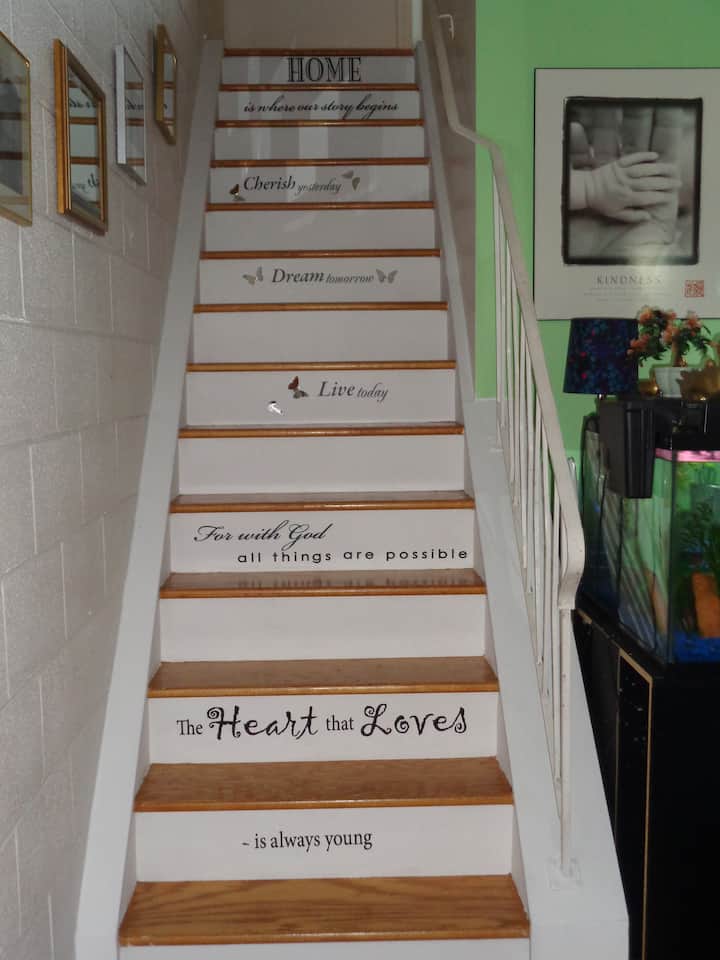 HOME
is where our story begins
Cherish yesterday
Dream tomorrow
Live today
For with God
all things are possible
The Heart that Loves
~ is always young
KINDNESS